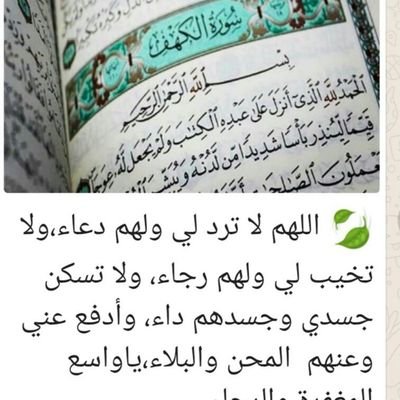 سورة الكهف
بسم الله الرحمن الرحيم
الحمد لله الذي أنزل على عبده الكتاب ولم يجعل له عوجا
قيما لينذر بأسا شديدا من لدنه ويبشر
يعملون الصالحات
اللهم لا ترد لي ولهم دعاء،ولا
تخيب لي ولهم رجاء، ولا تسكن
جسدي وجسدهم داء، وأدفع عني
وعنهم المحن والبلاء،ياواسع